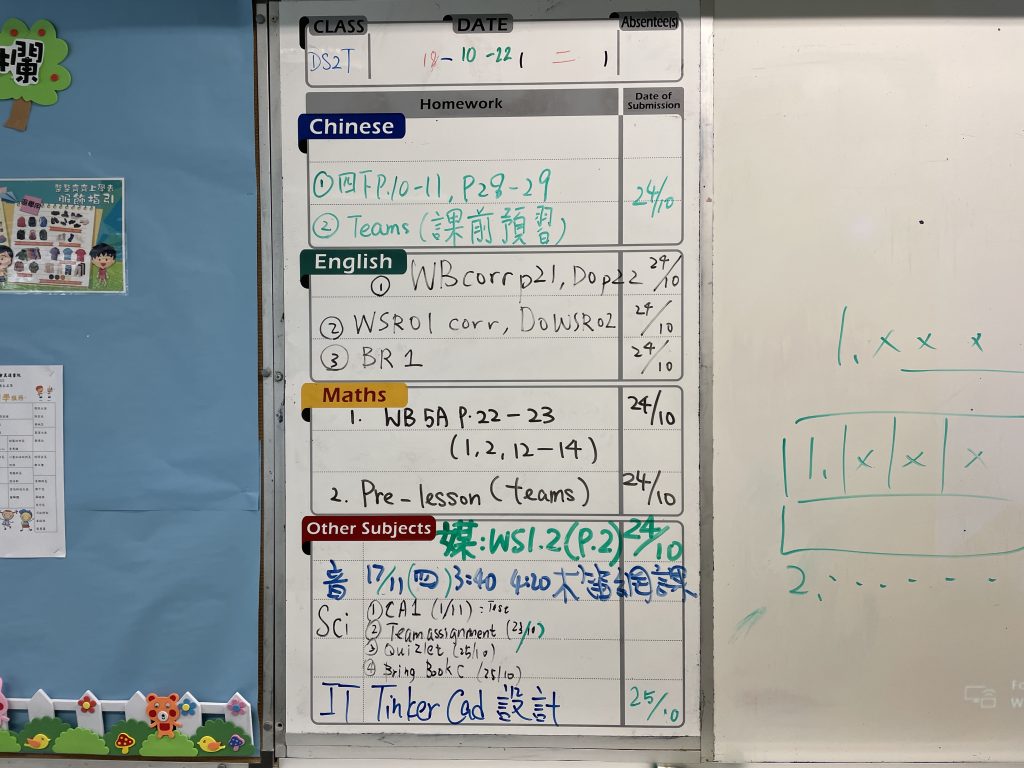 欄
整整齊齊上學去
服飾指引
CLASS DATE Absentee(s)
DS2T 18-10-22 ( 二 )
Homework Date of Submission
Chinese
① 四下P.10-11, P28-29 24/10
② Teams (課前預習)
English
① WBcorrp21, Dop22 24/10
② WSR01 corr, DoWSR02 24/10
③ BR 1 24/10
Maths
1. WB 5A P.22-23 24/10
(1, 2, 12-14)
2. Pre-lesson (teams) 24/10
Other Subjects
媒:WS1.2(P.2) 24/10
音 17/11(四)3:40 4:20 木笛網課
Sci ① CA1 (1/11) : Test
② Team assignment (23/10)
③ Quizlet (25/10)
④ Bring Book C (25/10)
IT Tinker Cad 設計 25/10
1. x x x
1. x x x
2.